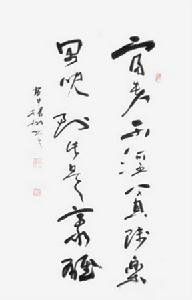 富貴不淫貧賤樂
男兒到此是豪雄